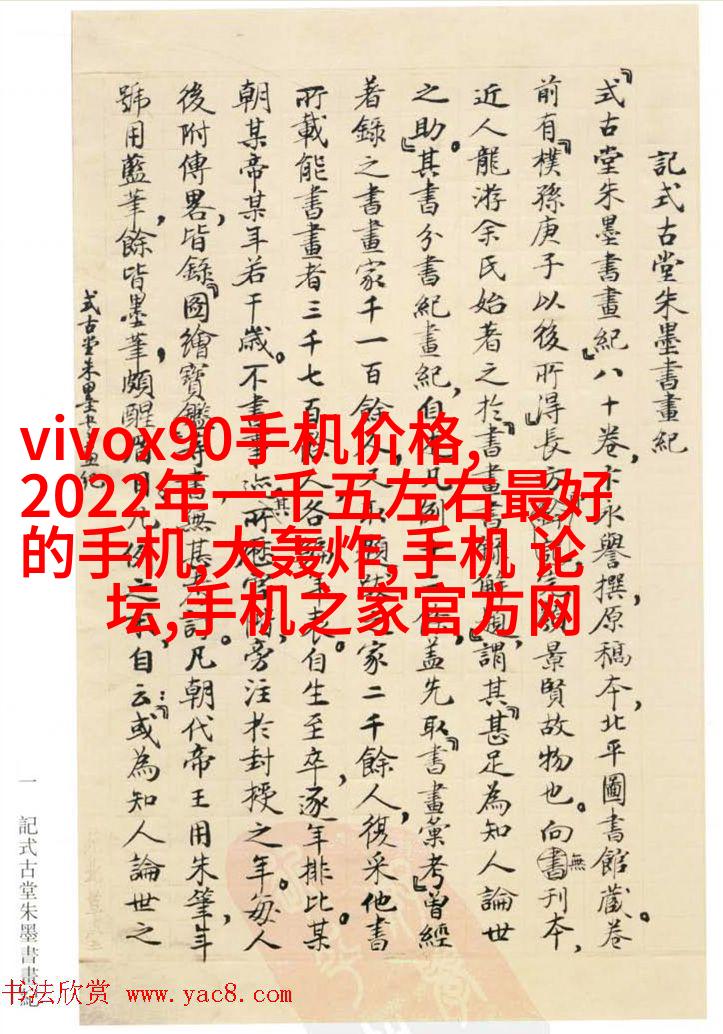 記式古堂朱墨書畫紀
『式古堂朱墨書畫紀』八十卷,卞永譽撰,原稿本,北平圖書館藏。卷
前有『樸孫庚子以後所得』長方
景賢故物也。向無刊本,
近人龍游余氏始著之於『書畫書
謂其『甚足為知人論世
之助』。其書分書紀畫紀,自
蓋先取『書畫彙考』曾經
著錄之書畫家千一百餘
家二千餘人,復采他書
所載能書畫者三千七百餘人,各
年表。自生至卒,逐年排比,某
朝某帝某年若干歲。不書事蹟,其所歷官階,旁注於封授之年。每人
後附傳畧,皆錄『圖繪寶鑑』等書,無甚
凡朝代帝王用朱筆,年
號用藍筆,餘皆墨筆,頗醒
自云:『或為知人論世之
式古堂朱墨書畫紀
vivox90手机价格,
2022年一千五左右最好
的手机,大轰炸,手机 论
坛,手机之家官方网
一 記式古堂朱墨書畫紀
书法欣赏 www.yac8.com